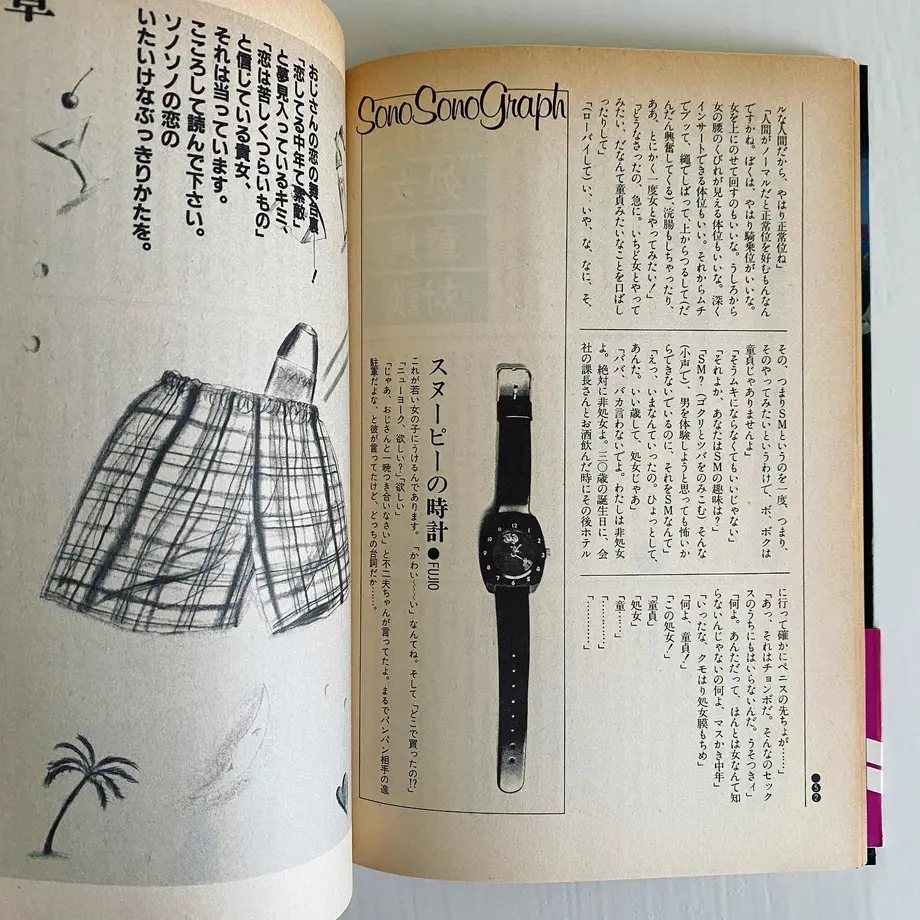 ルな人間だから、やはり正常位ね」
「人間がノーマルだと正常位を好むもんなん
ですかね。ぼくは、やはり騎乗位がいいな。
女を上にのせて回すのもいいな。うしろから
女の腰のくびれが見える体位もいいな。深く
インサートできる体位もいい。それからムチ
でブッて、縄でしばって、上からつるして(だ
んだん興奮してくる)、浣腸もしちゃったり、
ああ、とにかく一度女とやってみたい!」
「どうなさったの、急に。いちど女とやって
みたい、だなんて童貞みたいなことを口ばし
ったりして」
「(ローバイして)い、いや、な、なに、そ、
その、つまりSMというのを一度、つまり、
そのやってみたいというわけで、ボ、ボクは
童貞じゃありませんよ」
「そうムキにならなくてもいいじゃない」
「それよか、あなたはSMの趣味は?」
「SM?(ゴクリとツバをのみこむ)そんな
(小声で)、男を体験しようと思っても怖いか
らできないでいるのに、それをSMなんて」
「えっ、いまなんていったの。ひょっとして、
あんた。いい歳して、処女じゃあ」
「バ、バ、バカ言わないでよ。わたしは非処女
よ。絶対に非処女よ。三〇歳の誕生日に、会
社の課長さんとお酒飲んだ時にその後ホテル
に行って確かにペニスの先ちょが……」
「あっ、それはチョンボだ。そんなのセック
スのうちにもはいらないんだ。うそつきィ」
「何よ。あんただって、ほんとは女なんて知
らないんじゃないの何よ、マスかき中年」
「いったな、クモはり処女膜もちめ」
「何よ、童貞!」
「この処女!」
「童貞」
「処女」
「童……」
「…………」
「…………」
57
SonoSonoGraph
スヌーピーの時計●FUJIO
これが若い女の子にうけるんであります。「かわい〜〜い」なんてね。そして「どこで買ったの!?」
「ニューヨーク、欲しい?」「欲しい」
「じゃあ、おじさんと一晩つき合いなさい」と不二夫ちゃんが言ってたよ。まるでパンパン相手の進
駐軍だよな、と彼が言ってたけど、どっちの台詞だか……。
章
おじさんの恋の舞台裏
「恋してる中年て素敵」
と夢見入っているキミ、
「恋は苦しくつらいもの」
と信じている貴女、
それは当っています。
こころして読んで下さい。
ソノソノの恋の
いたいけなぶっきりかたを。